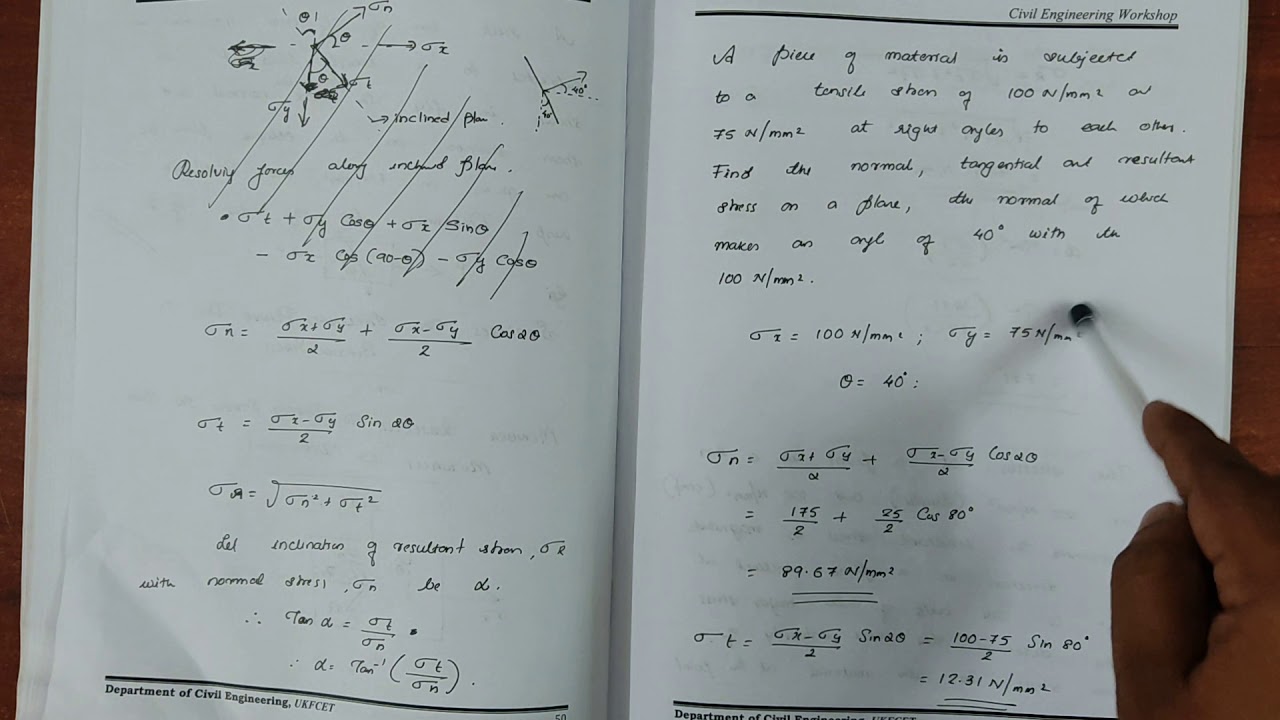 θ
σn
θ
→ σx
θ
σt
σy
→ inclined plan.
40°
40°
Resolvig forces along inclined plane.
σt + σy Cosθ + σx Sinθ
- σx Cos (90-θ) - σy Cosθ
σn = σx+σy/2 + σx-σy/2 Cos2θ
σt = σx-σy/2 Sin 2θ
σR = √σn² + σt²
Let inclination of resultant stress, σR
with normal stress, σn be α.
∴ Tan α = σt/σn.
∴ α = Tan⁻¹ (σt/σn).
Department of Civil Engineering, UKFCET
50
Civil Engineering Workshop
A piece of material is subjected
to a tensile stress of 100 N/mm² and
75 N/mm² at right angles to each other.
Find the normal, tangential and resultant
stress on a plane, the normal of which
makes an angle of 40° with the
100 N/mm².
σx = 100 N/mm² ; σy = 75 N/mm²
θ = 40° :
σn = σx+σy/2 + σx-σy/2 Cos2θ
= 175/2 + 25/2 Cos 80°
= 89.67 N/mm²
σt = σx-σy/2 Sin2θ = 100-75/2 Sin 80°
= 12.31 N/mm²
Department of Civil Engineering, UKFCET